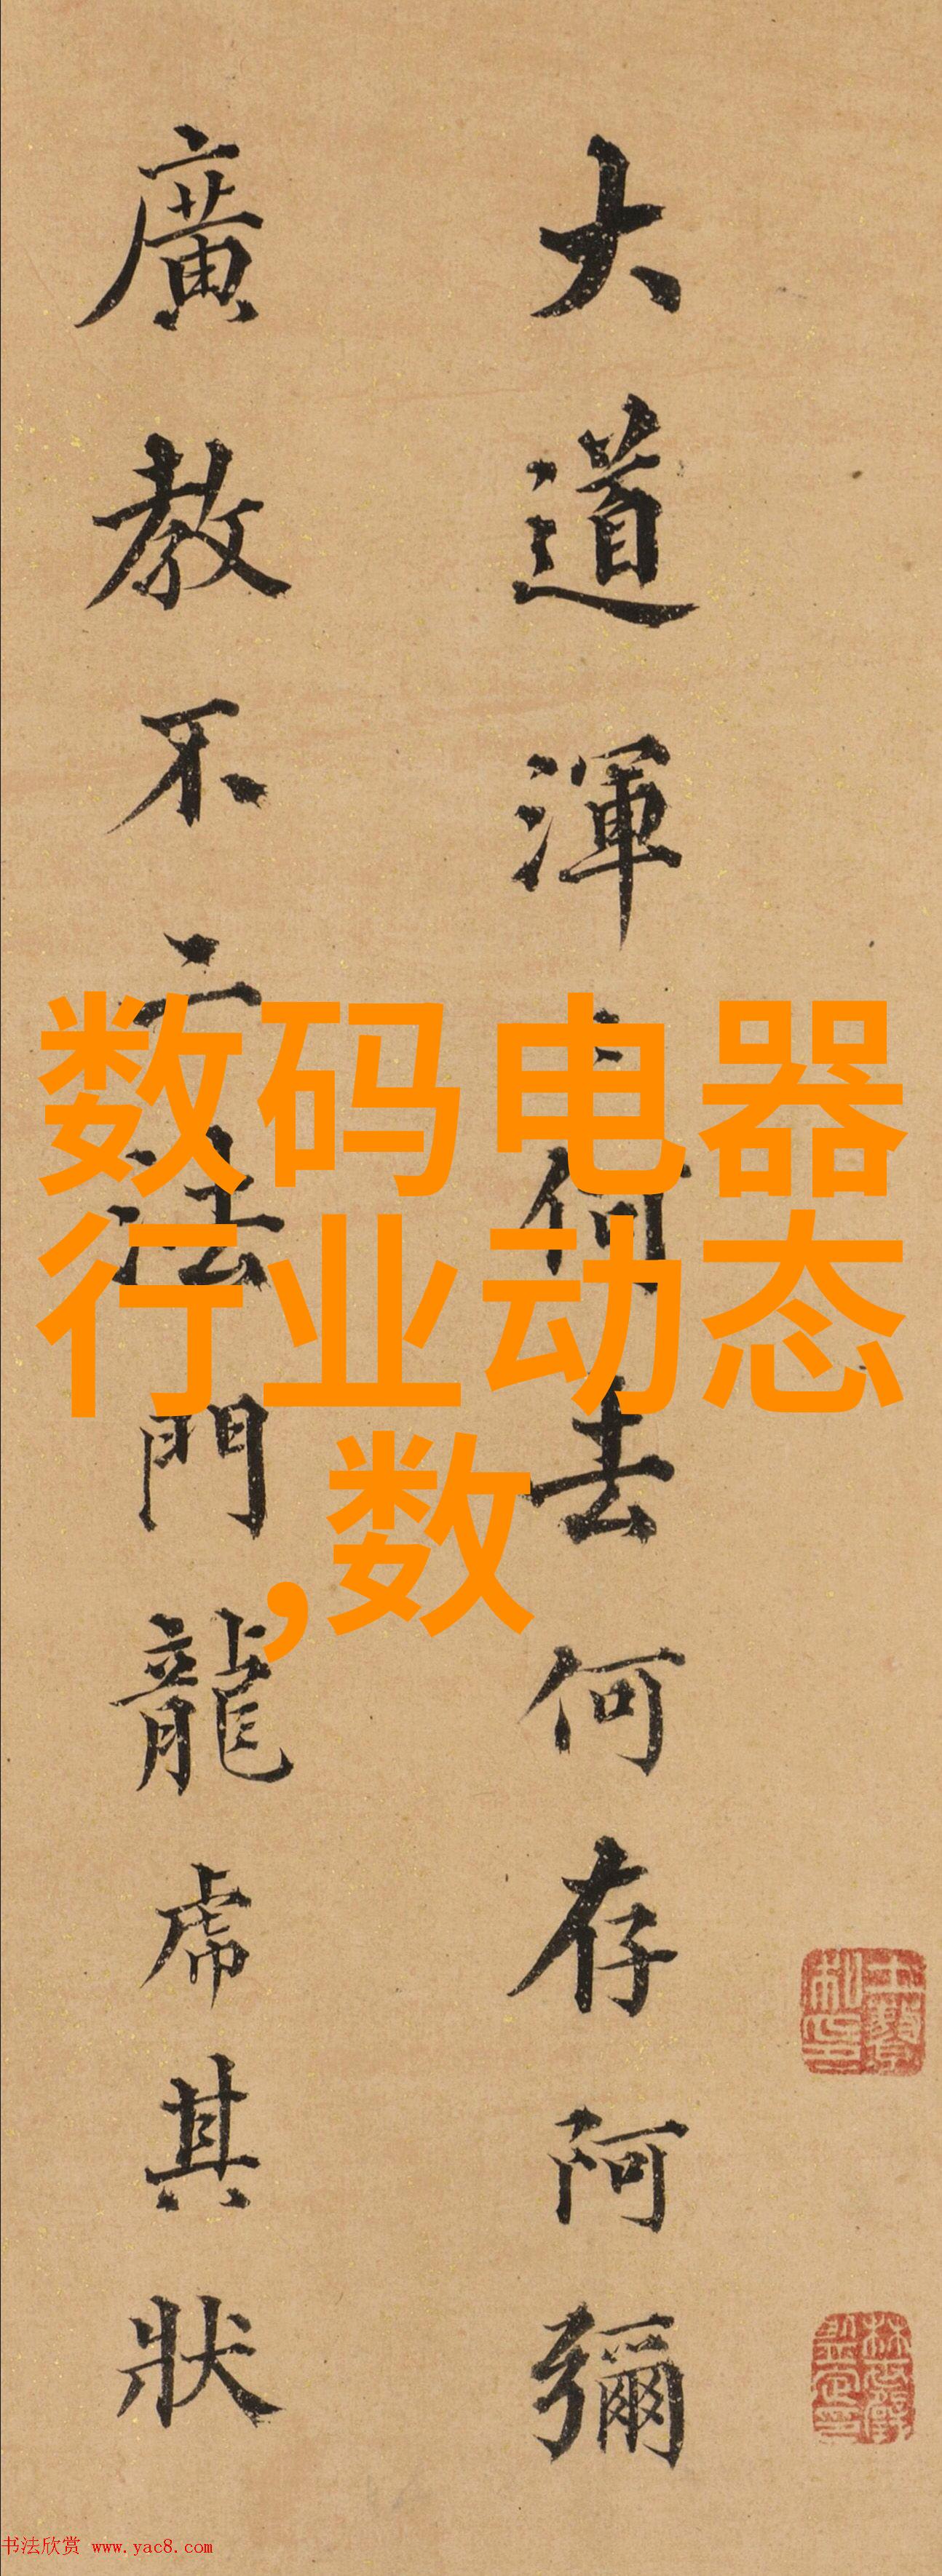 大道渾何去何存阿彌
廣教不二法門龍虎其狀
数码电器
行业动态
,数
书法欣赏 www.yac8.com